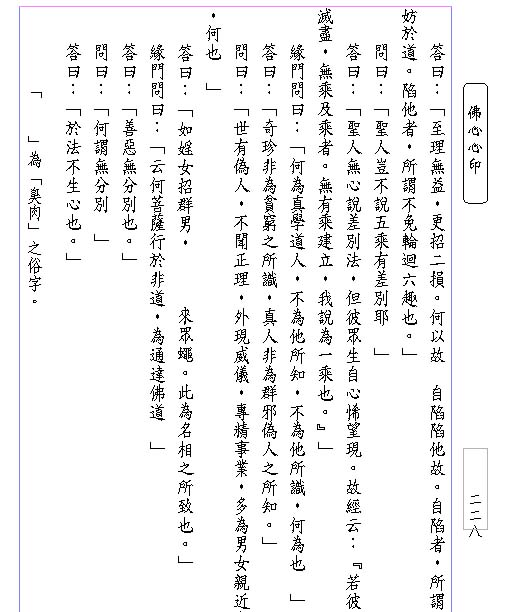 佛心心印
二二八
答曰：「至理無益，更招二損。何以故　自陷陷他故。自陷者，所謂
妨於道。陷他者，所謂不免輪迴六趣也。」
問曰：「聖人豈不說五乘有差別耶　」
答曰：「聖人無心說差別法，但彼眾生自心悕望現。故經云：『若彼
滅盡，無乘及乘者。無有乘建立，我說為一乘也。』」
緣門問曰：「何為真學道人，不為他所知，不為他所識，何為也　」
答曰：「奇珍非為貧窮之所識，真人非為群邪偽人之所知。」
問曰：「世有偽人，不閑正理，外現威儀，專精事業，多為男女親近
，何也　」
答曰：「如婬女招群男，　　來眾蠅。此為名相之所致也。」
緣門問曰：「云何菩薩行於非道，為通達佛道　」
答曰：「善惡無分別也。」
問曰：「何謂無分別　」
答曰：「於法不生心也。」
「　　」為「臭肉」之俗字。